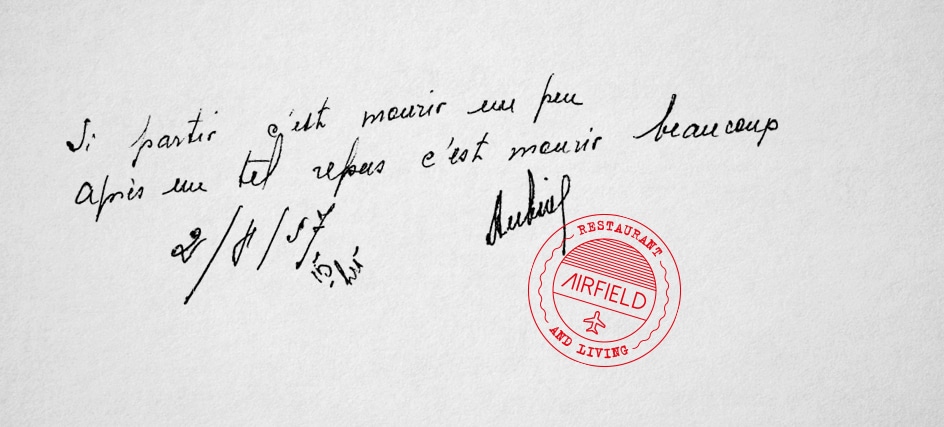 Si partir c'est mourir un peu
après un tel repas c'est mourir beaucoup
2/8/57
15 hrs
RESTAURANT
AIRFIELD
AND LIVING